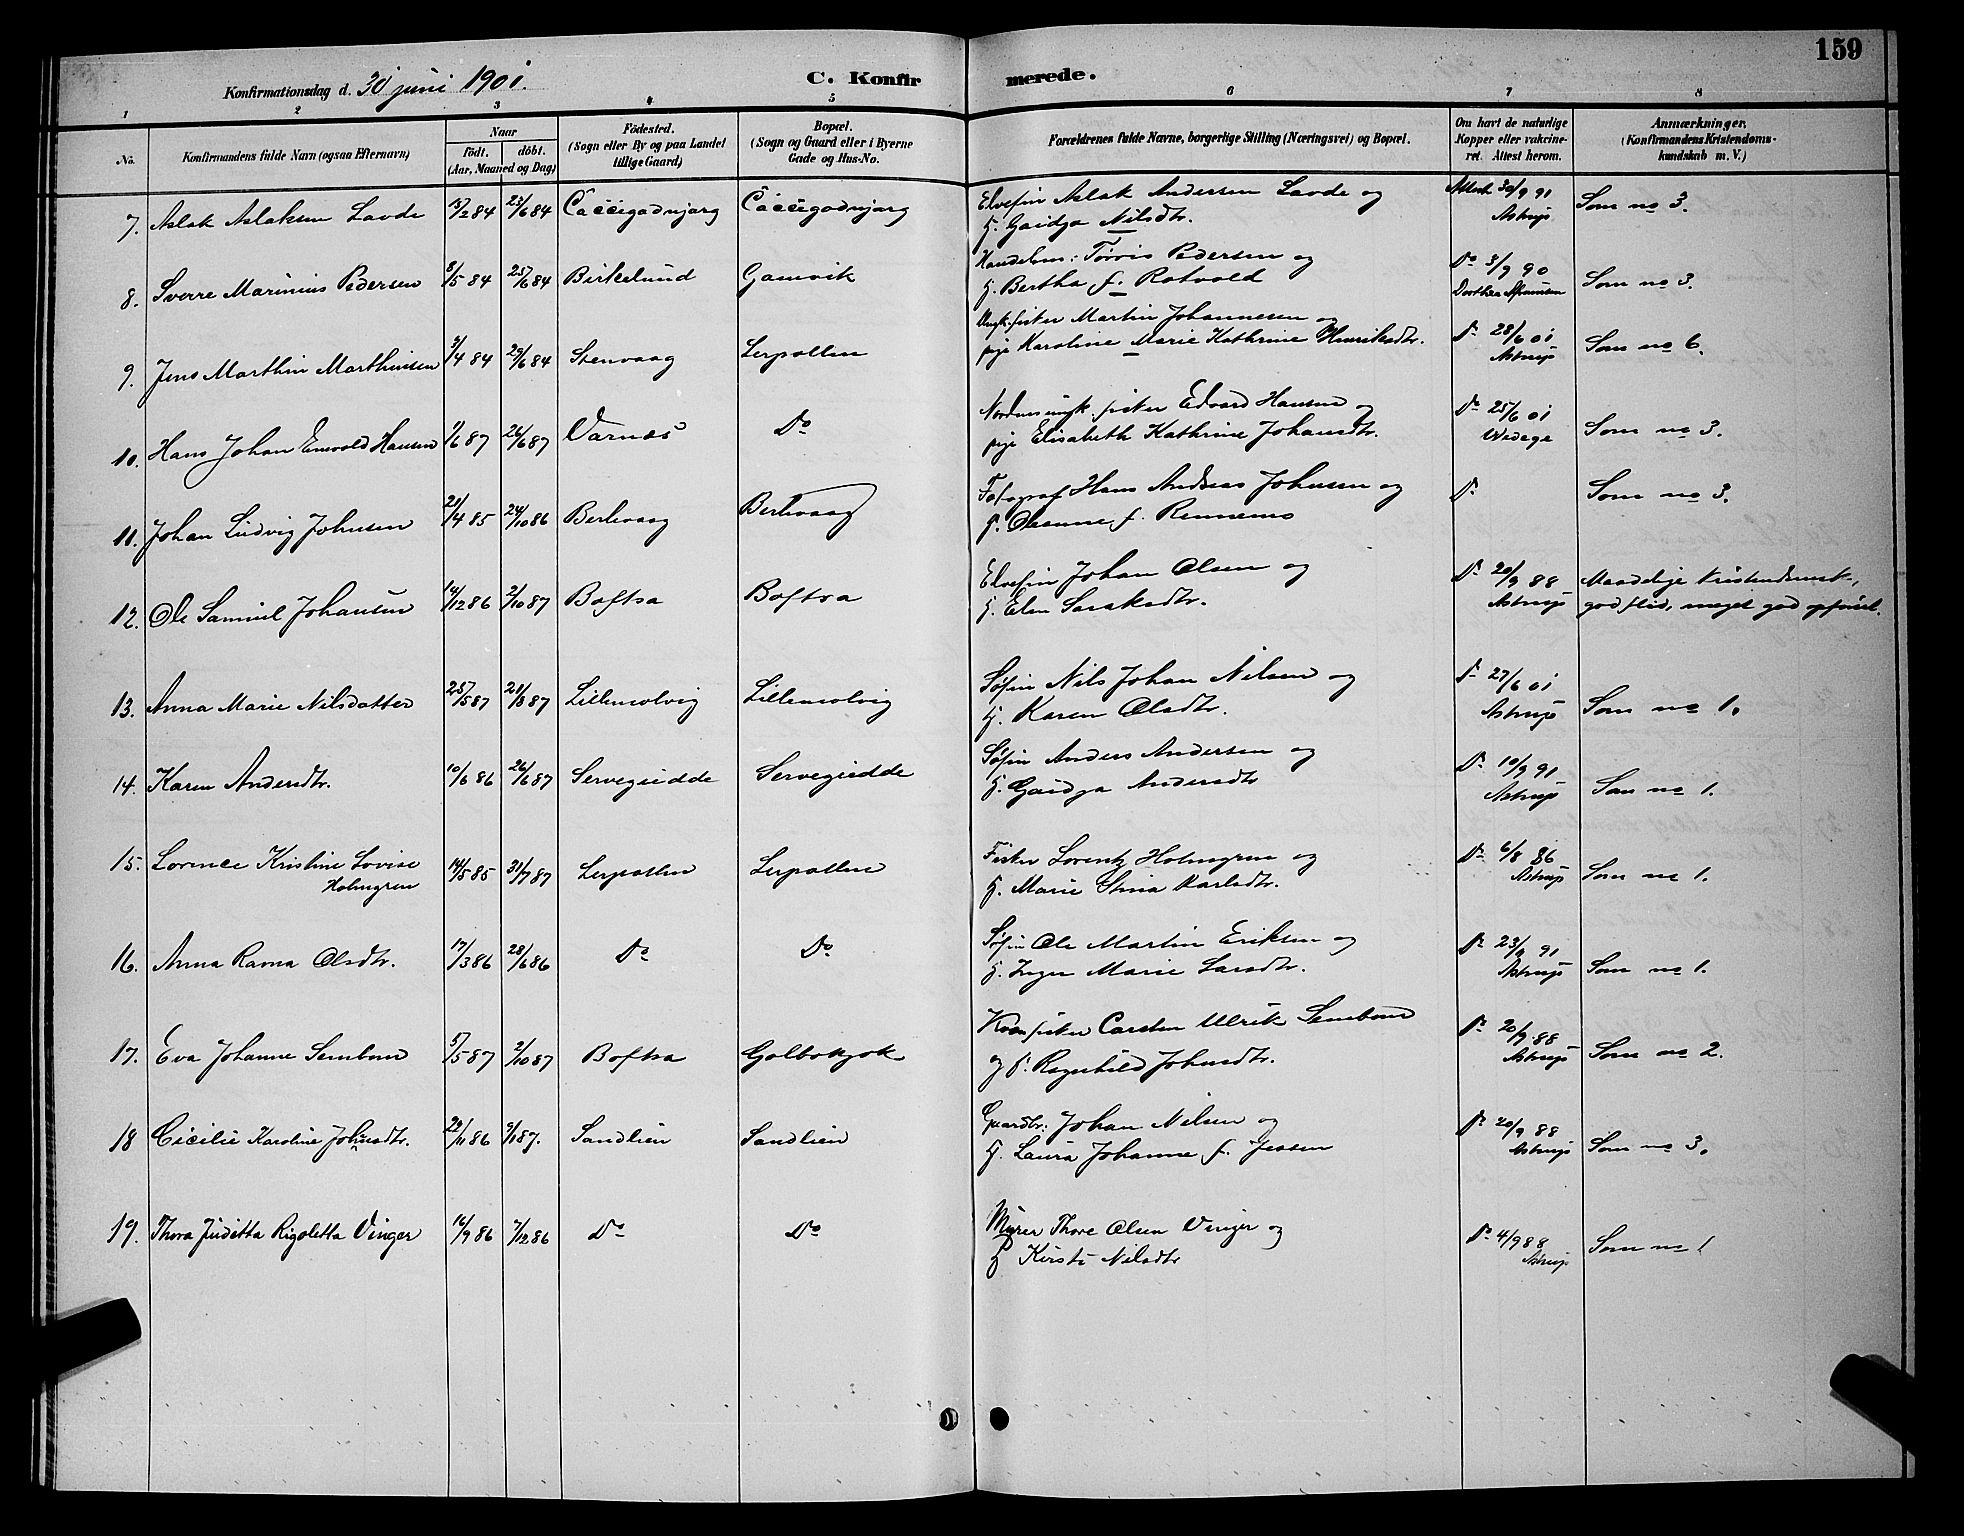 159
Konfirmationsdag d. 30 juni 1901.
C. Konfirmerede.
1 2 3 4 5 6 7 8
No.
Konfirmandens fulde Navn (ogsaa Efternavn)
Naar
födt. döbt.
(Aar, Maaned og Dag)
Födested.
(Sogn eller By og paa Landet
tillige Gaard)
Bopæl.
(Sogn og Gaard eller i Byerne
Gade og Hus-No.
Forældrenes fulde Navne, borgerlige Stilling (Næringsvei) og Bopæl.
Om havt de naturlige
Kopper eller vakcine-
ret. Attest herom.
Anmærkninger,
(Konfirmandens Kristendoms-
kundskab m. V.)
7. Aslak Aslaksen Lavde 15/2 84 25/6 84 Caccegadnjarg Caccegadnjarg
Elvefin Aslak Andersen Lavde og
H. Gaidja Nilsdtr.
Attest 30/9 91
Astrup
Som no 3.
8. Sverre Marinius Pedersen 8/5 84 25/6 84 Birkelund Gamvik
Handelsm: Pedersen og
H. Bertha f. Rotvold
Do 3/9 90
Dorthea
Som no 3.
9. Jens Marthin Marthinsen 3/4 84 29/6 84 Stenvaag Lerpollen
Ungk. fisker Martin Johannesen og
pige Karoline Marie Kathrine Henriksdtr.
Do 28/6 01
Astrup
Som no 6.
10. Hans Johan Enevold Hansen 1/6 87 26/6 87 Varnæs Do
Nordm ungk. fisker Edvard Hansen og
pige Elisabeth Kathrine Johansdtr.
Do 25/6 01
Wedege
Som no 3.
11. Johan Ludvig Johnsen 21/4 85 24/10 86 Berlevaag Berlevaag
Fotograf Hans Andreas Johnsen og
H. f. Rennemo
Do
Som no 3.
12. Ole Samuel Johansen 14/12 86 2/10 87 Boftsa Boftsa
Elvefin Johan Olsen og
H. Elen Saraksdtr.
Do 20/9 88
Astrup
Maadelige kristendomsk.,
god flid, meget god opførsel.
13. Anna Marie Nilsdatter 25/5 87 21/8 87 Lillemolvig Lillemolvig
Søfin Nils Johan Nilsen og
H. Karen Olsdtr.
Do 27/6 01
Astrup
Som no 1.
14. Karen Andersdtr. 10/6 86 26/6 87 Servegiedde Servegiedde
Søfin Anders Andersen og
H. Gaidja Andersdtr
Do 10/9 91
Astrup
Som no 1.
15. Lorence Kristine Lovise
Holmgren
14/5 85 31/7 87 Lerpollen Lerpollen
Fisker Lorentz Holmgren og
H. Marie Stina Karlsdtr.
Do 6/8 86
Astrup
Som no 1.
16. Anna Ravna Olsdtr. 17/3 86 28/6 86 Do Do
Søfin Ole Martin Eriksen og
H. Inger Marie Larsdtr.
Do 23/9 91
Astrup
Som no 1.
17. Eva Johanne Sembom 5/5 87 2/10 87 Boftsa Golbokjok
Kvænfisker Carsten Ulrik Sembom
og H. Ragnhild Johnsdtr.
Do 20/9 88
Astrup
Som no 2.
18 Cicilie Karoline Johansdtr. 29/11 86 9/1 87. Sandlien Sandlien
Gaardbr: Johan Nilsen og
H. Laura Johanne f. Jessen
Do 20/9 88
Astrup
Som no 3.
19. Thora Juditta Rigoletta Vinger 16/9 86 7/12 86 Do Do
Murer Thore Olsen Vinger og
H Kirsti Nilsdtr
Do 4/9 88
Astrup
Som no 1